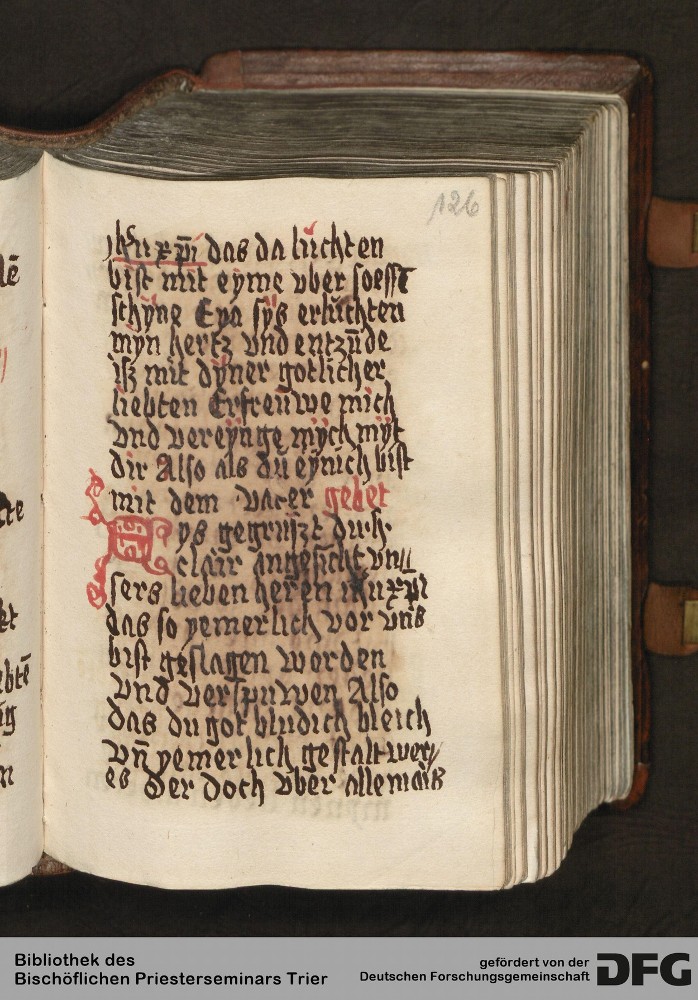 126
jhū xp̄i das da lüchten
bist mit eyme vber soesst
schyne Eya sÿs erlüchten
mÿn hertz vnd entzünde
iß mit dÿner gotlicher
liebten Erfreüwe mich
vnd vereÿnge mÿch mÿt
dir Also als dü eÿnich bist
mit dem vater gebet
Bys gegrüszt du h
clair angesicht vn//
sers lieben heren ihū xp̄i
das so yemerlich vor vn̄s
bist geslagen worden
vnd verspuwen Also
das du got bludich bleich
vn̄ yemerlich gestalt wer/
es Der doch vber alle mans
lē
te
kt
ebtē
ig
n
Bibliothek des
Bischöflichen Priesterseminars Trier
gefördert von der
Deutschen Forschungsgemeinschaft
DFG